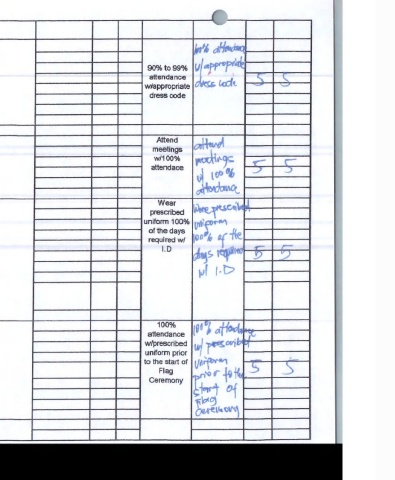 90% to 99%
attendance
w/appropriate
dress code
100% attendance
w/ appropriate
dress code
5 5
Attend
meetings
w/100%
attendace
attend
meetings
w/ 100%
attendance
5 5
Wear
prescribed
uniform 100%
of the days
required w/
I.D
Wore prescribed
uniform
100% of the
days required
w/ I.D
5 5
100%
attendance
w/prescribed
uniform prior
to the start of
Flag
Ceremony
100% attendance
w/ prescribed
uniform
prior to the
start of
Flag
Ceremony
5 5